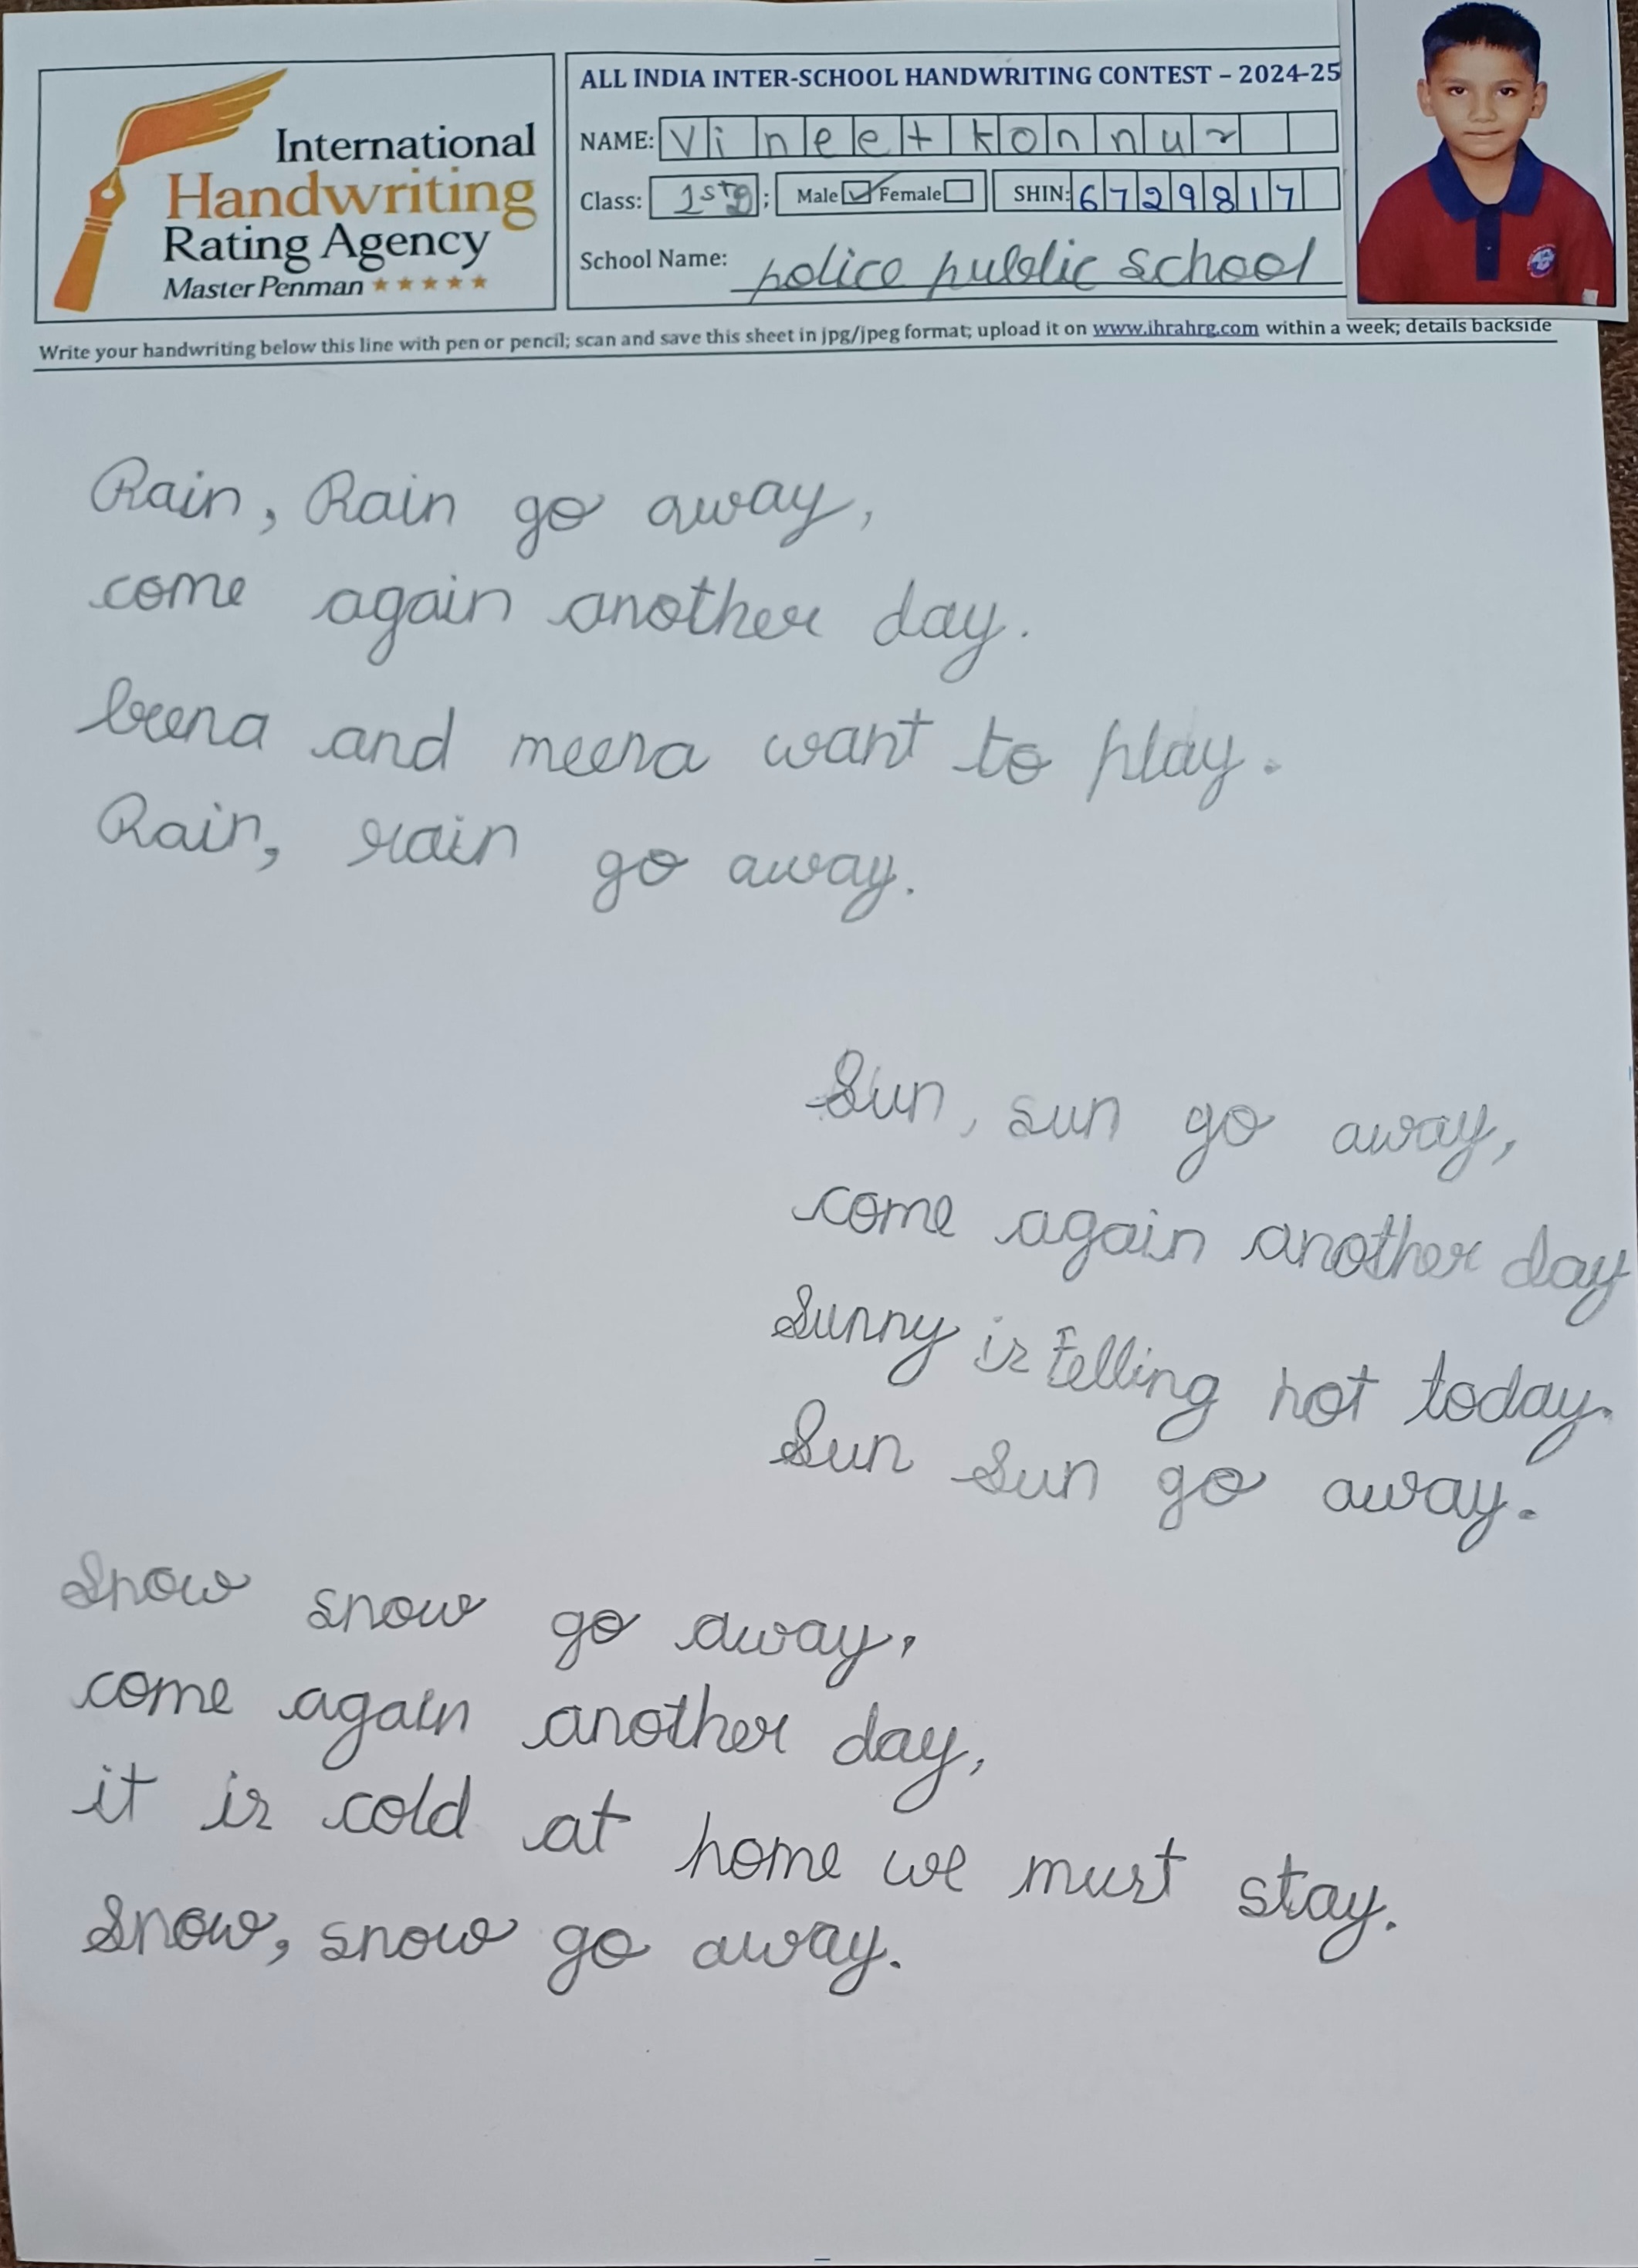 International
Handwriting
Rating Agency
Master Penman ★★★★★
ALL INDIA INTER-SCHOOL HANDWRITING CONTEST – 2024-25
NAME: Vineet konnur
Class: 1st D ; Male ☑ Female ☐ SHIN: 6729817
School Name: police public school
Write your handwriting below this line with pen or pencil; scan and save this sheet in jpg/jpeg format; upload it on www.ihrahrg.com within a week; details backside
Rain, Rain go away,
come again another day.
beena and meena want to play.
Rain, rain go away.
Sun, sun go away,
come again another day
Sunny is telling not today.
Sun Sun go away.
Snow snow go away,
come again another day,
it is cold at home we must stay.
Snow, snow go away.